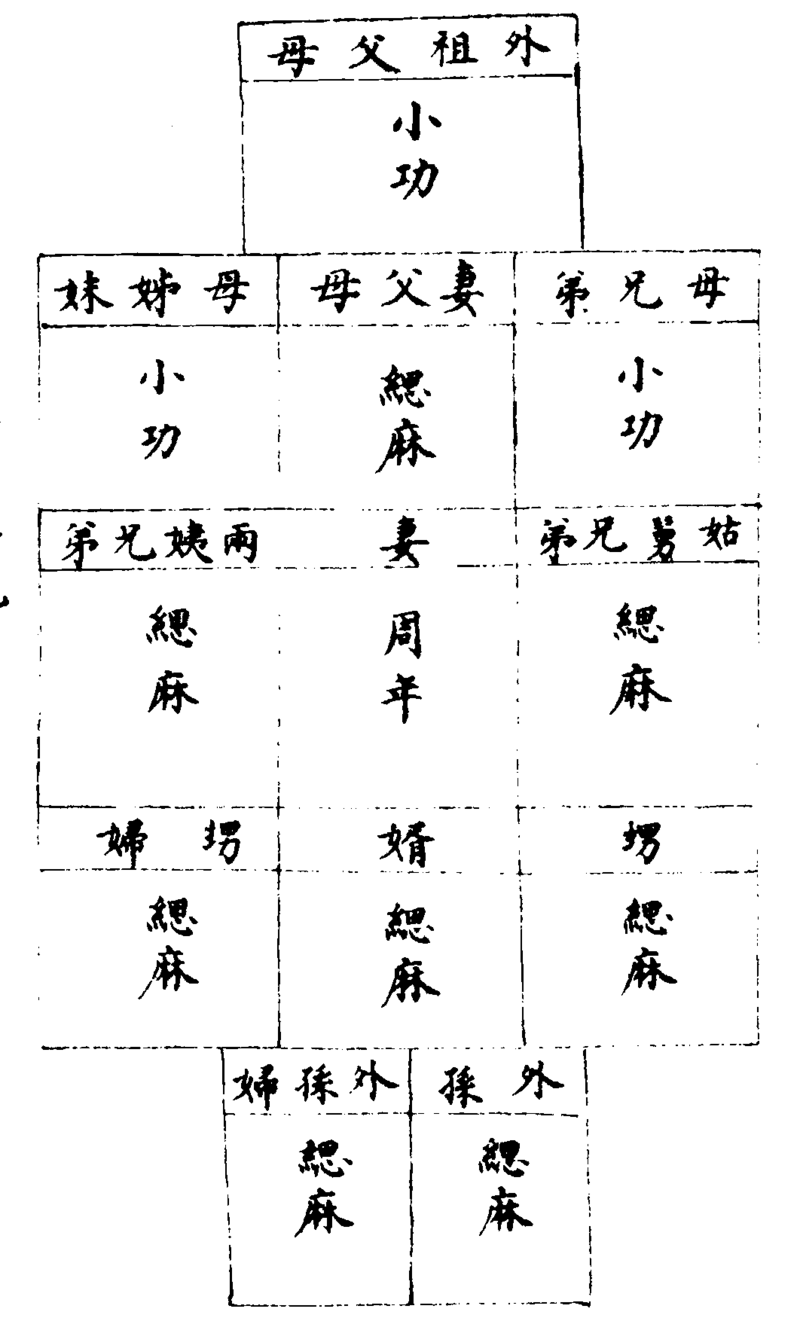 外祖父母
小功
母兄弟
小功
妻父母
緦麻
母姊妹
小功
姑舅兄弟
緦麻
妻
周年
兩姨兄弟
緦麻
甥
緦麻
婿
緦麻
甥婦
緦麻
外孫
緦麻
外孫婦
緦麻